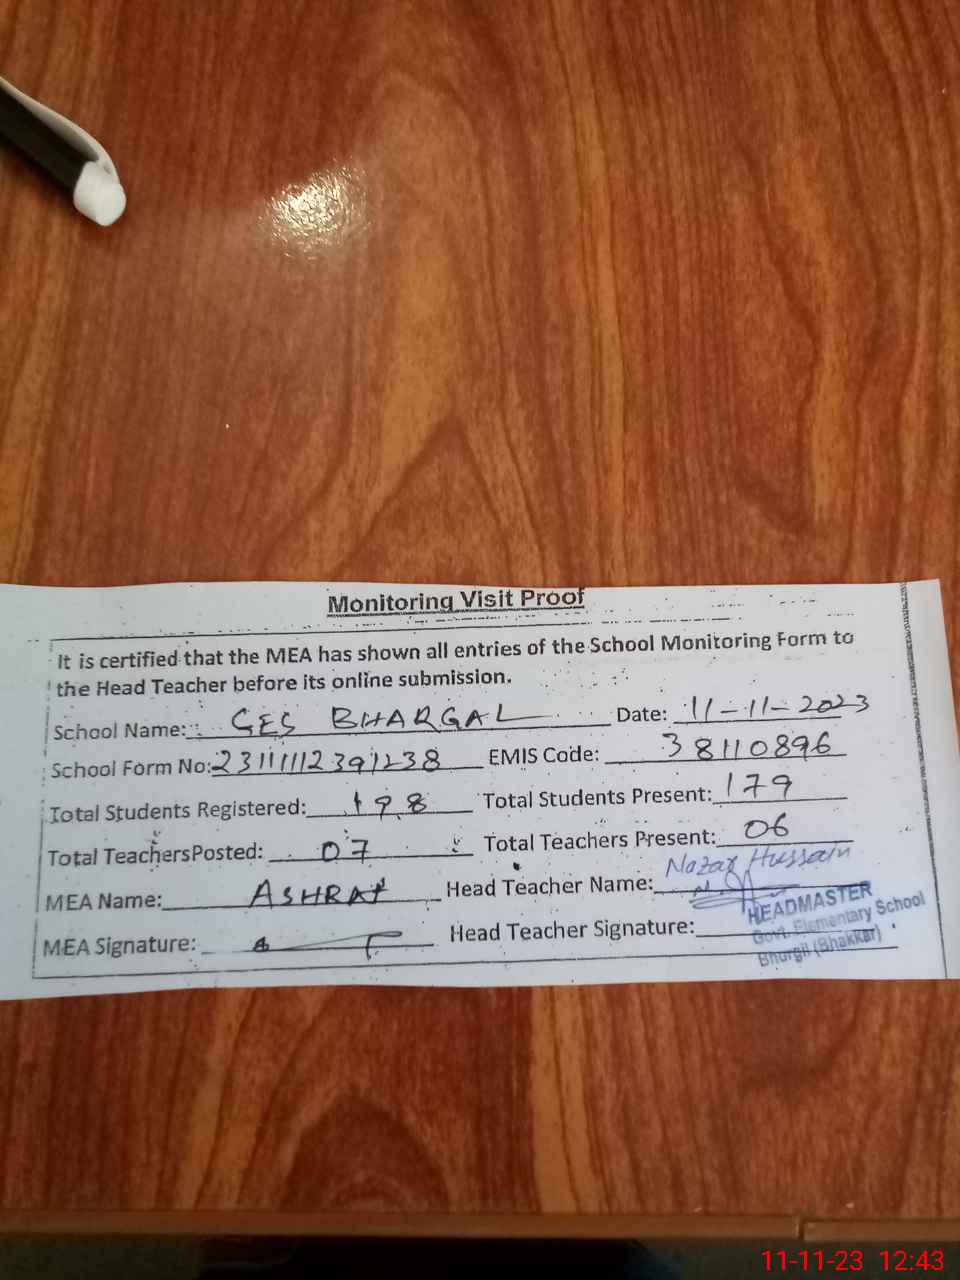 Monitoring Visit Proof
It is certified that the MEA has shown all entries of the School Monitoring Form to
the Head Teacher before its online submission.
School Name: GES BHARGAL Date: 11-11-2023
School Form No: 23111112391238 EMIS Code: 38110896
Total Students Registered: 198 Total Students Present: 179
Total TeachersPosted: 07 Total Teachers Present: 06
MEA Name: ASHRAF Head Teacher Name: Nazar Hussain
MEA Signature: Head Teacher Signature:
HEADMASTER
Govt. Elementary School
Bhurgil (Bhakkar)
11-11-23 12:43